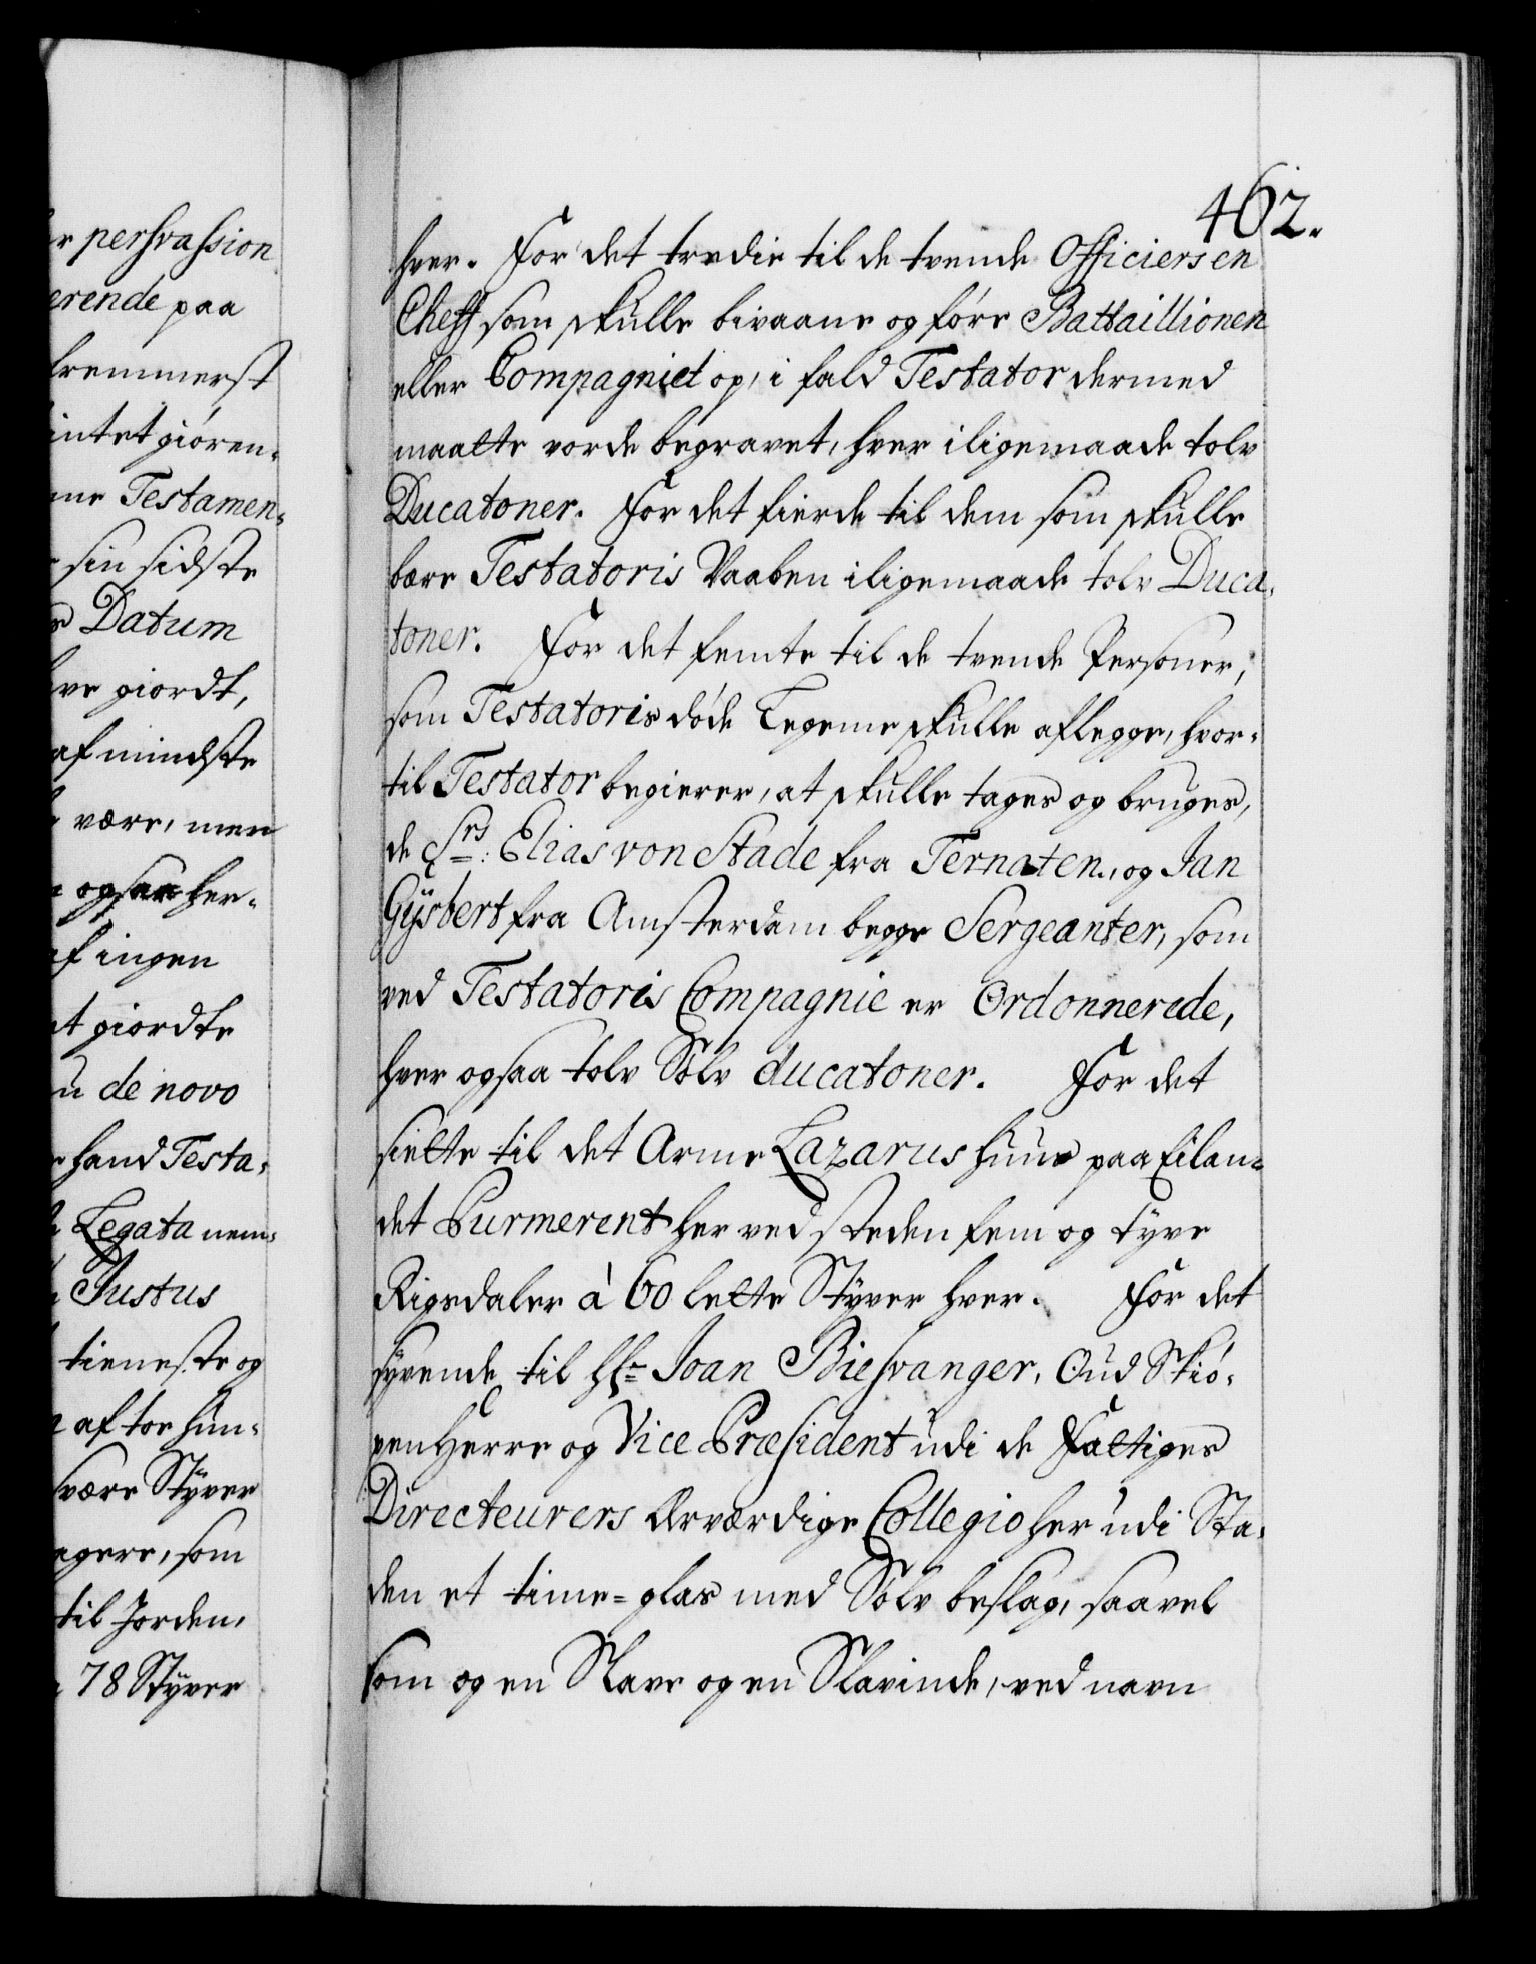 r persvassion
erende paa
fremmerst
intet giören-
me Testamen-
sin sidste
Datum
ve giordt,
af mindste
være, men
ogsaa her-
af ingen
t giordte
u de novo
hand Testa-
Legata nem-
Justus
tieneste og
af toe hun-
svære Styver
agere, som
til Jorden,
78 Styver
462.
hver. For det tredie til de tvende Officiers en
Cheff som skulle bivaane og føre Battaillionen
eller Compagniet op, i fald Testator dermed
maatte vorde begravet, hver iligemaade tolv
Ducatoner. For det fierde til dem som skulle
bære Testatoris Vaaben iligemaade tolv Duca-
toner. For det femte til de tvende Personer,
som Testatoris døde Legeme skulle aflegge, hvor-
til Testator begierer, at skulle tages og bruges,
de Srs: Elias von Stade fra Ternaten, og Jan
Gÿsbert fra Amsterdam begge Sergeanter, som
ved Testatoris Compagnie er Ordonnerede,
hver ogsaa tolv Sølv ducatoner. For det
siette til det Arme Lazarus Huus paa Eilan-
det Purmerent her ved steden fem og tyve
Rigsdaler à 60 lette Styver hver. For det
syvende til Hr Joan Biesvanger, Oud Skiø-
pen Herre og Vice Præsident udi de Fattiges
Directeurers Ærværdige Collegio her udi Sta-
den et time-glas med Sølv beslag, saavel
som og en Slave og en Slavinde, ved navn